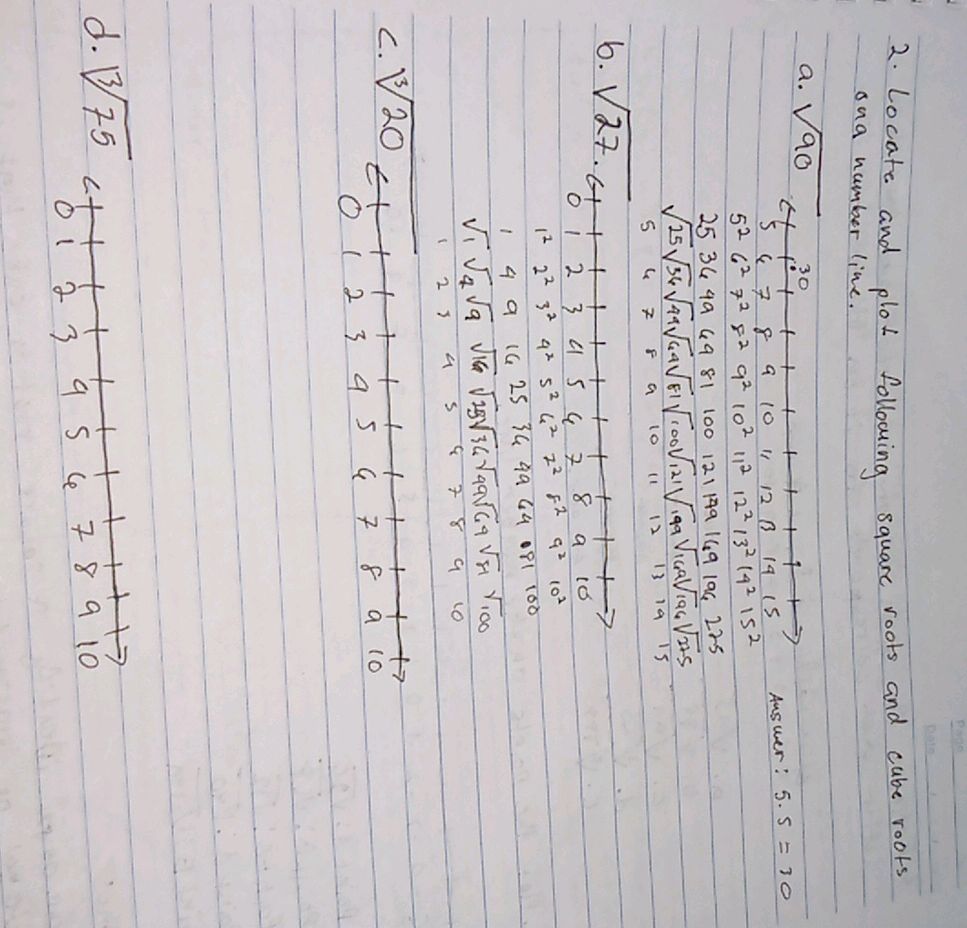 2. Locate and plot following square roots and cube roots
ona number line.
a. √90
30
5 6 7 8 9 10 11 12 13 14 15
Answer: 5.5 = 30
5² 6² 7² 8² 9² 10² 11² 12² 13² 14² 15²
25 36 49 64 81 100 121 144 169 196 225
√25 √36 √49 √64 √81 √100 √121 √144 √169 √196 √225
5 6 7 8 9 10 11 12 13 14 15
b. √27.
0 1 2 3 4 5 6 7 8 9 10
1² 2² 3² 4² 5² 6² 7² 8² 9² 10²
1 4 9 16 25 36 49 64 81 100
√1 √4 √9 √16 √25 √36 √49 √64 √81 √100
1 2 3 4 5 6 7 8 9 10
c. ∛20
0 1 2 3 4 5 6 7 8 9 10
d. ∛75
0 1 2 3 4 5 6 7 8 9 10